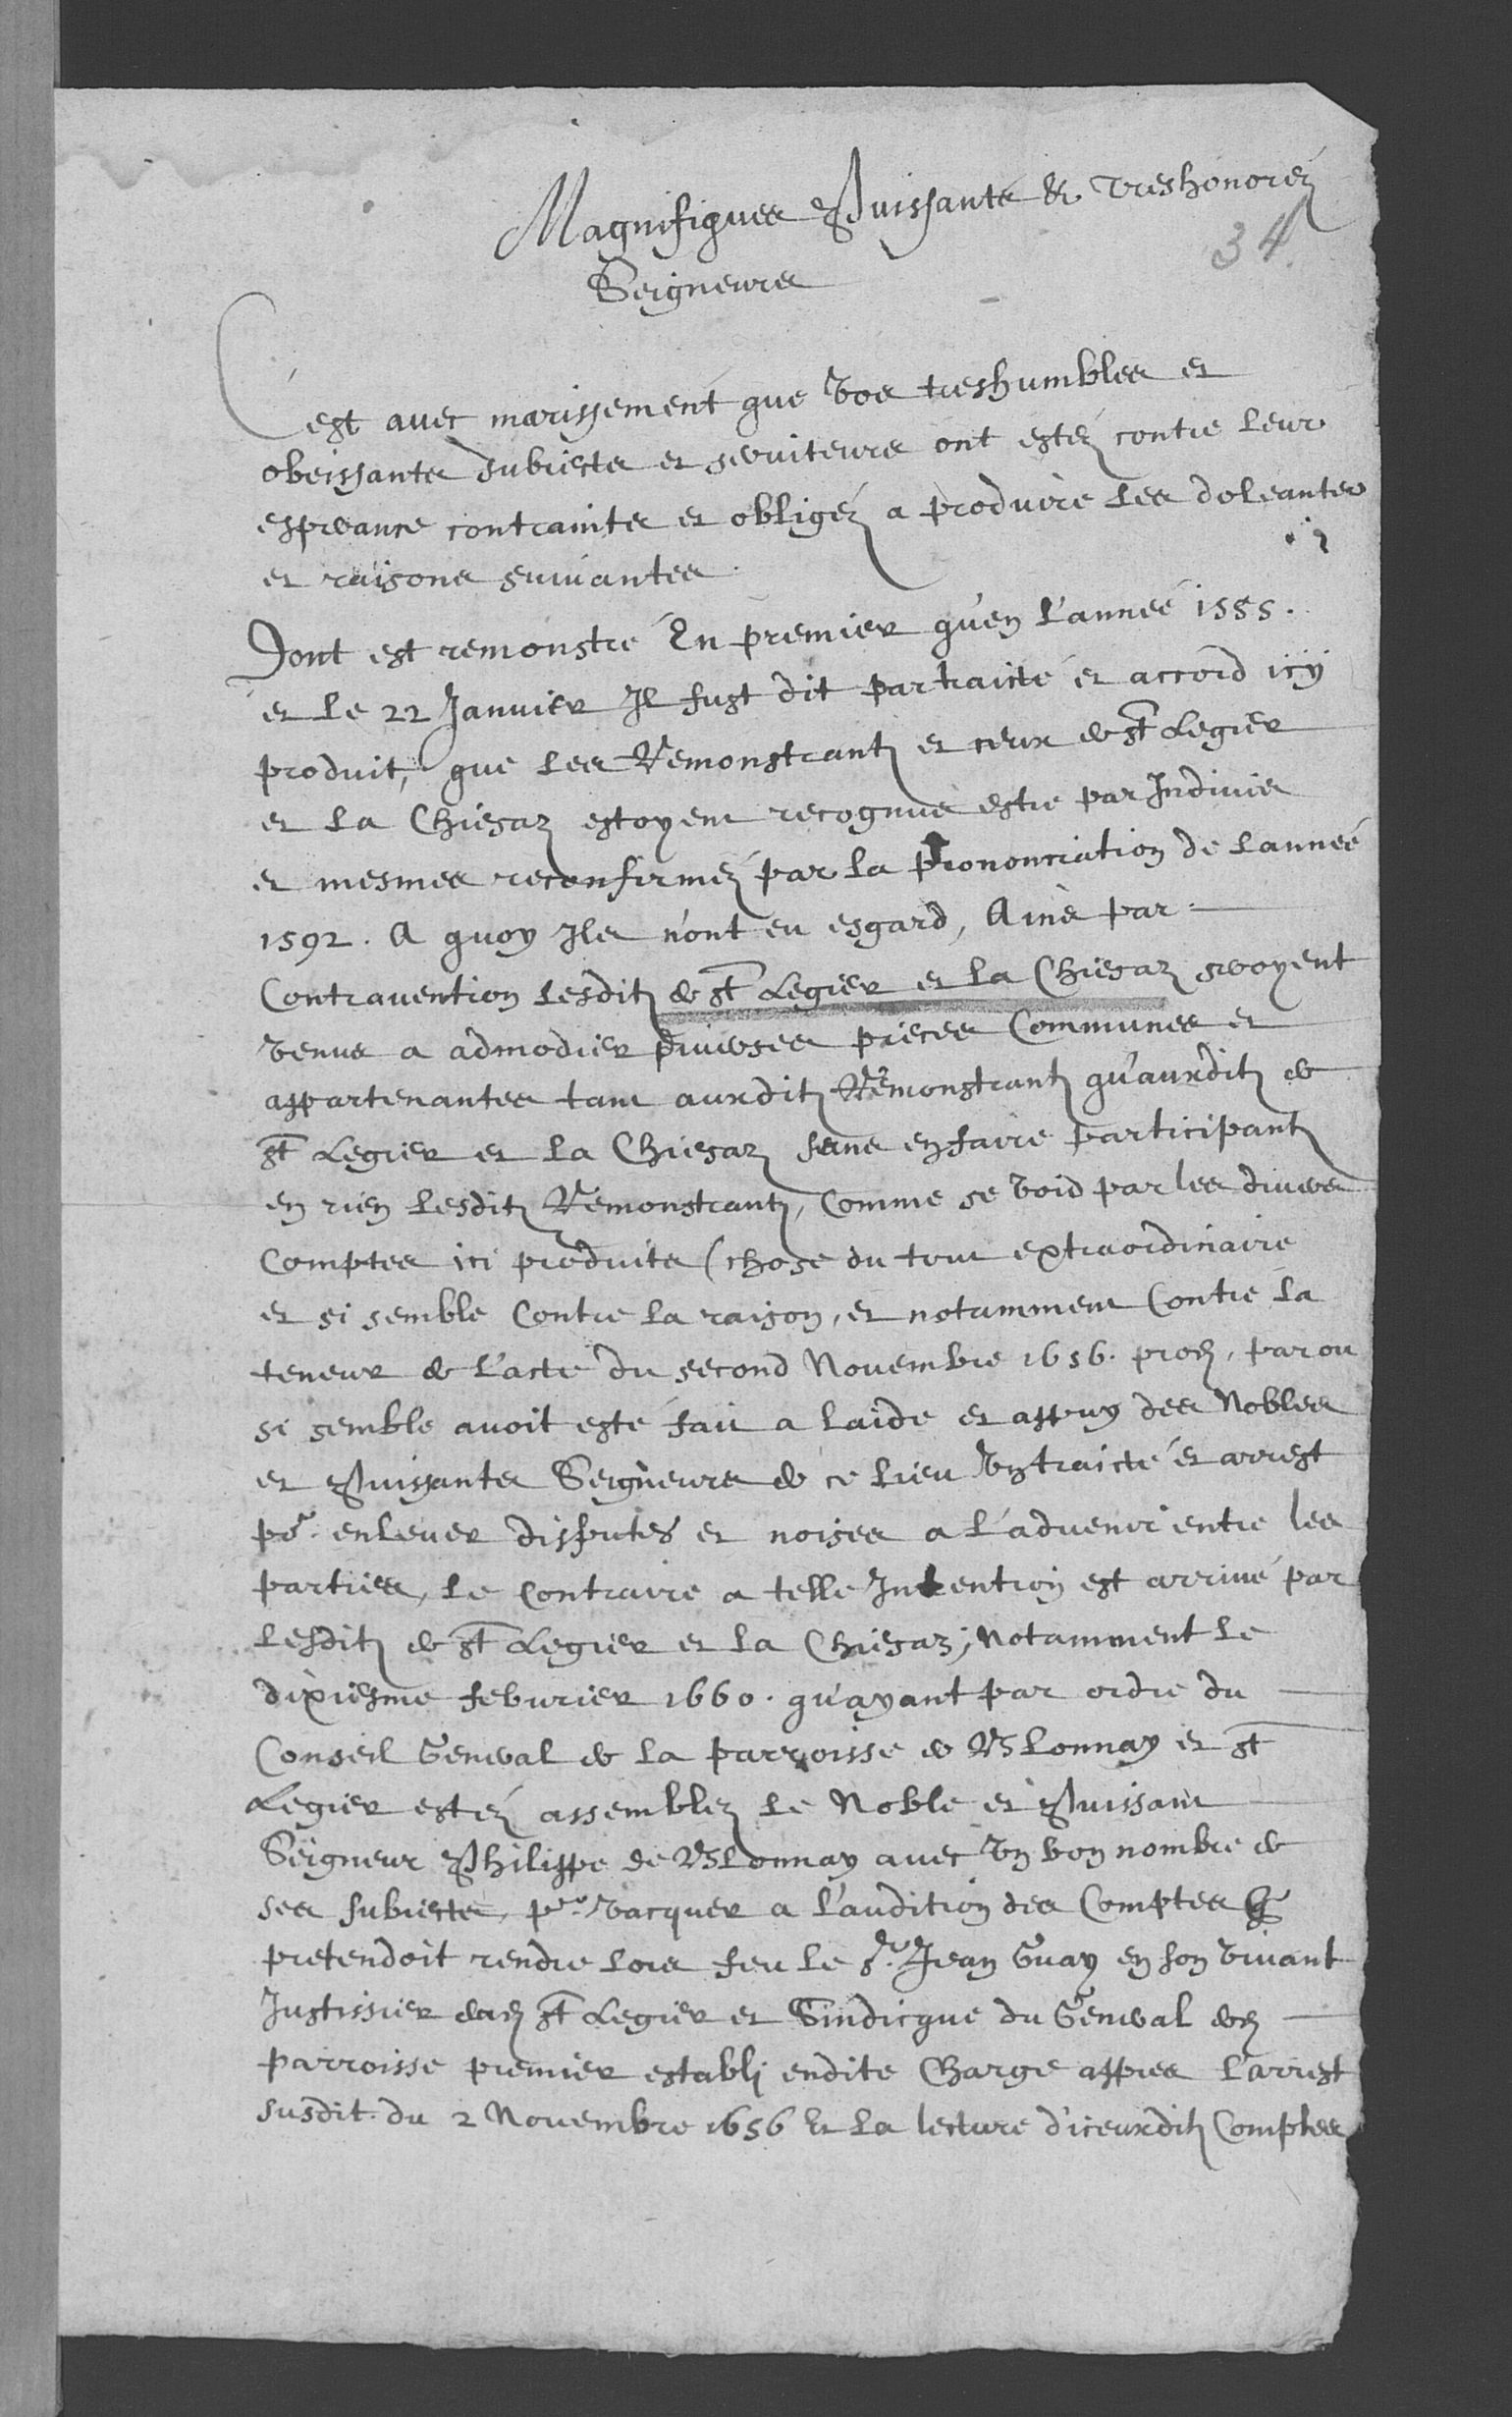 Magnifiques Puissants & treshonoréz
34
Seigneurs
C'est avec marissement que vos treshumbles et
obeissants subiects et serviteurs ont estéz contre leur
esperance contraints et obligéz a produire les doleantes
et raisons suivantes.
Dont est remonstré En premier qu'en l'année 1555.
et le 22 Janvier Il fust dit par traicté et accord icy
produit, que les Remonstrantz et ceux de St Legier
et La Chiesaz estoyent recognus estre par Indivis
et mesmes reconfirméz par la prononciation de l'année
1592. A quoy Ils n'ont eu esgard, Ains par
Contravention lesditz de St Legier et La Chiesaz seroyent
venus a admodier diverses pieces Communes et
appartenantes tant auxditz Remonstrantz qu'auxditz de
St Legier et La Chiesaz sans en faire participantz
en rien lesditz Remonstrantz, Comme se void par les divers
Comptes ici produits (chose du tout extraordinaire
et si semble Contre la raison, et notamment Contre la
teneur de l'acte du second Novembre 1656. prod, par ou
si semble avoit esté fait a laide et appuy des Nobles
et Puissants Seigneurs de ce lieu Un traicté et arrest
pr. enlever disputes et noises a l'advenir entre les
parties, le Contraire a telle Intention est arrivé par
lesditz de St Legier et la Chiesaz; Notamment le
dixiesme febvrier 1660. qu'ayant par ordre du
Conseil General de la parroisse de Blonnay et St
Legier estéz assemblez le Noble et Puissant
Seigneur Philippe de Blonnay avec Un bon nombre de
ses subiects, pr. vacquer a l'audition des Comptes q
pretendoit rendre lors feu le Sr. Jean Guay en son vivant
Justissier dud St Legier et Sindicque du General de d
parroisse premier establi endite Charge appres l'arrest
susdit du 2 Novembre 1656 Et La lecture d'iceuxditz Comptes